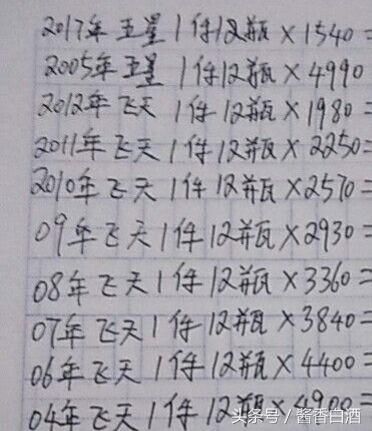 2017年五星1件12瓶×1540=
2005年五星1件12瓶×4990
2012年飞天1件12瓶×1980=
2011年飞天1件12瓶×2250=
2010年飞天1件12瓶×2570=
09年飞天1件12瓶×2930=
08年飞天1件12瓶×3360=
07年飞天1件12瓶×3840=
06年飞天1件12瓶×4400=
04年飞天1件12瓶×4900=
头条号/酱香白酒